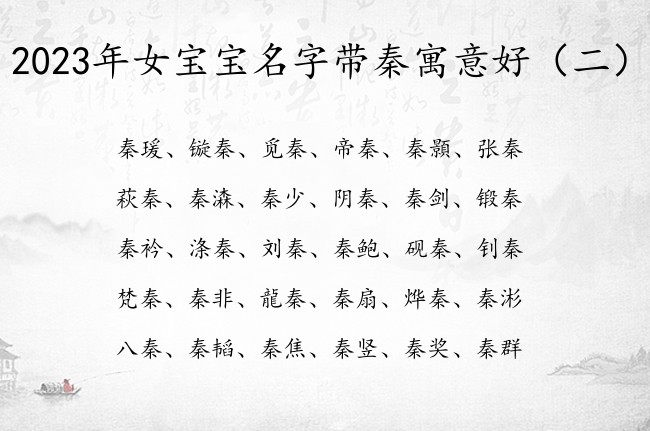 2023年女宝宝名字带秦寓意好（二）
秦瑗、镟秦、觅秦、帝秦、秦颢、张秦
萩秦、秦淼、秦少、阴秦、秦剑、锻秦
秦衿、涤秦、刘秦、秦鲍、砚秦、钊秦
梵秦、秦非、龍秦、秦扇、烨秦、秦涁
八秦、秦韬、秦焦、秦竖、秦奖、秦群